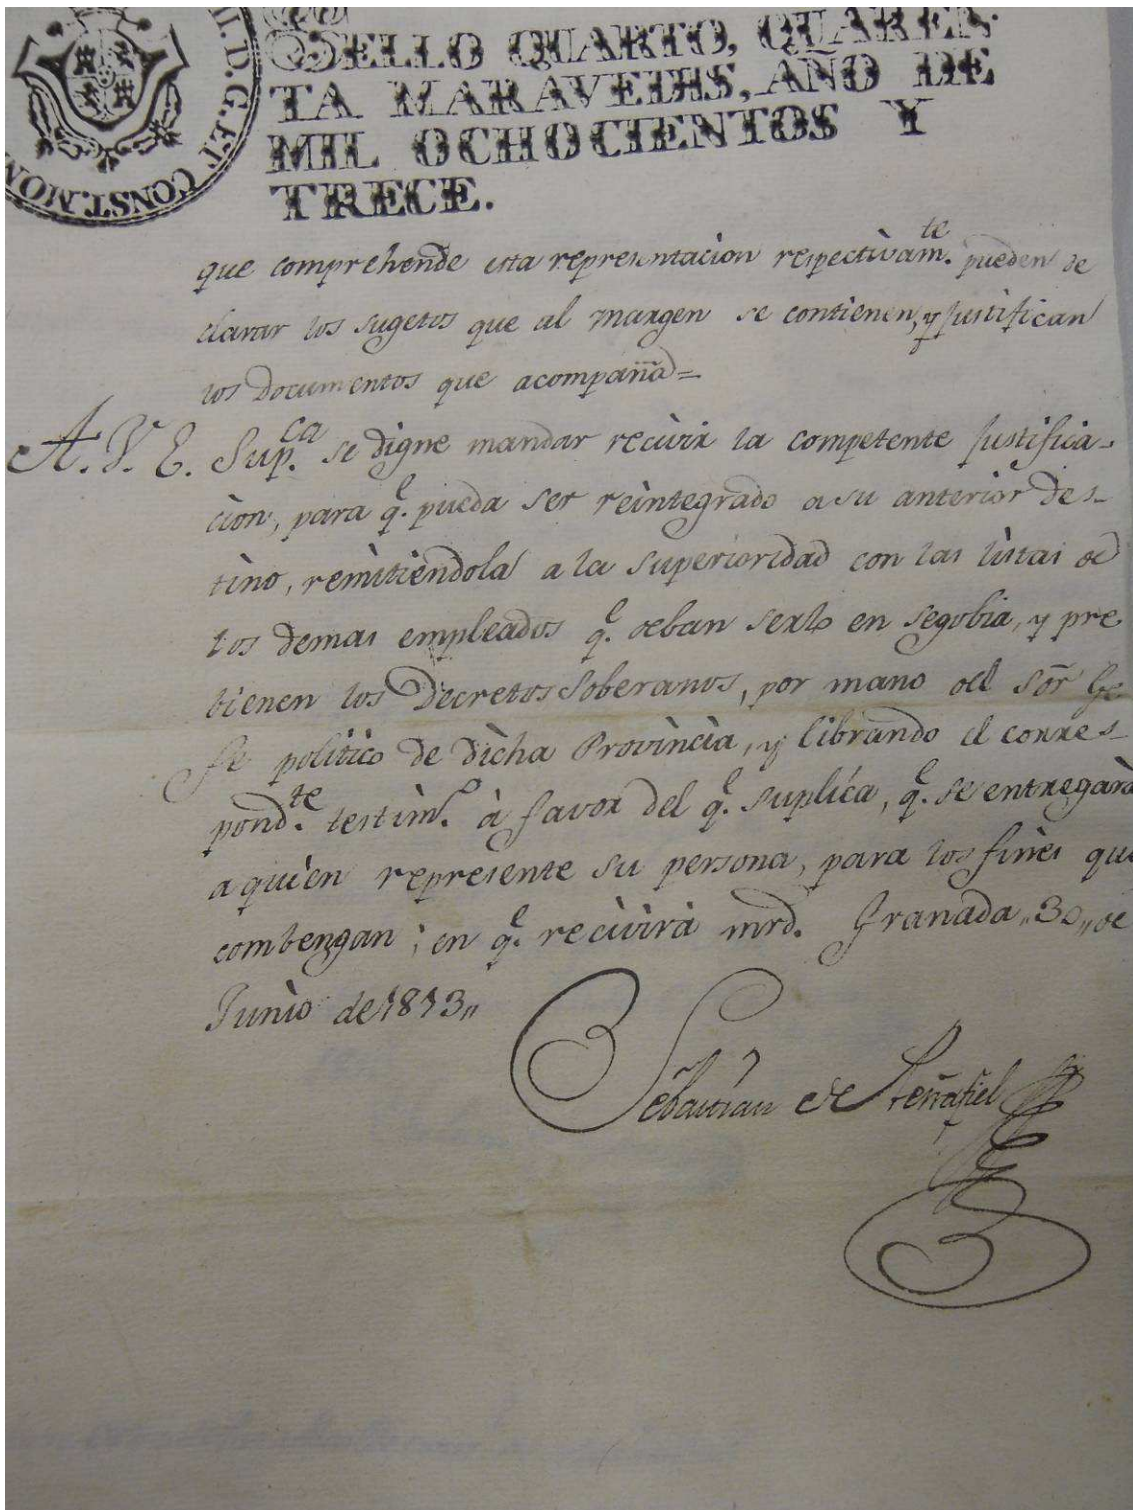 II. D. G. ET CONST. MON
SELLO QUARTO, QUAREN-
TA MARAVEDIS, AÑO DE
MIL OCHOCIENTOS Y
TRECE.
que comprehende esta representacion respectivam.te pueden de
clarar los sugetos que al margen se contienen, y justifican
los Documentos que acompaña=
A. V. E. Sup.ca se digne mandar recivir la competente justifica-
cion, para q.e pueda ser reintegrado a su anterior des-
tino, remitiendola a la superioridad con las listas de
los demas empleados q.e deban serlo en Segobia, y pre
bienen los Decretos Soberanos, por mano del Sõr Ge
fe politico de dicha Provincia, y librando el corres-
pond.te testim.o à favor del q.e suplica, q.e se entregarà
a quien represente su persona, para los fines que
combengan; en q.e recivirà mrd. Granada „30„ de
Junio de 1813„
Sebastian de Peñafiel